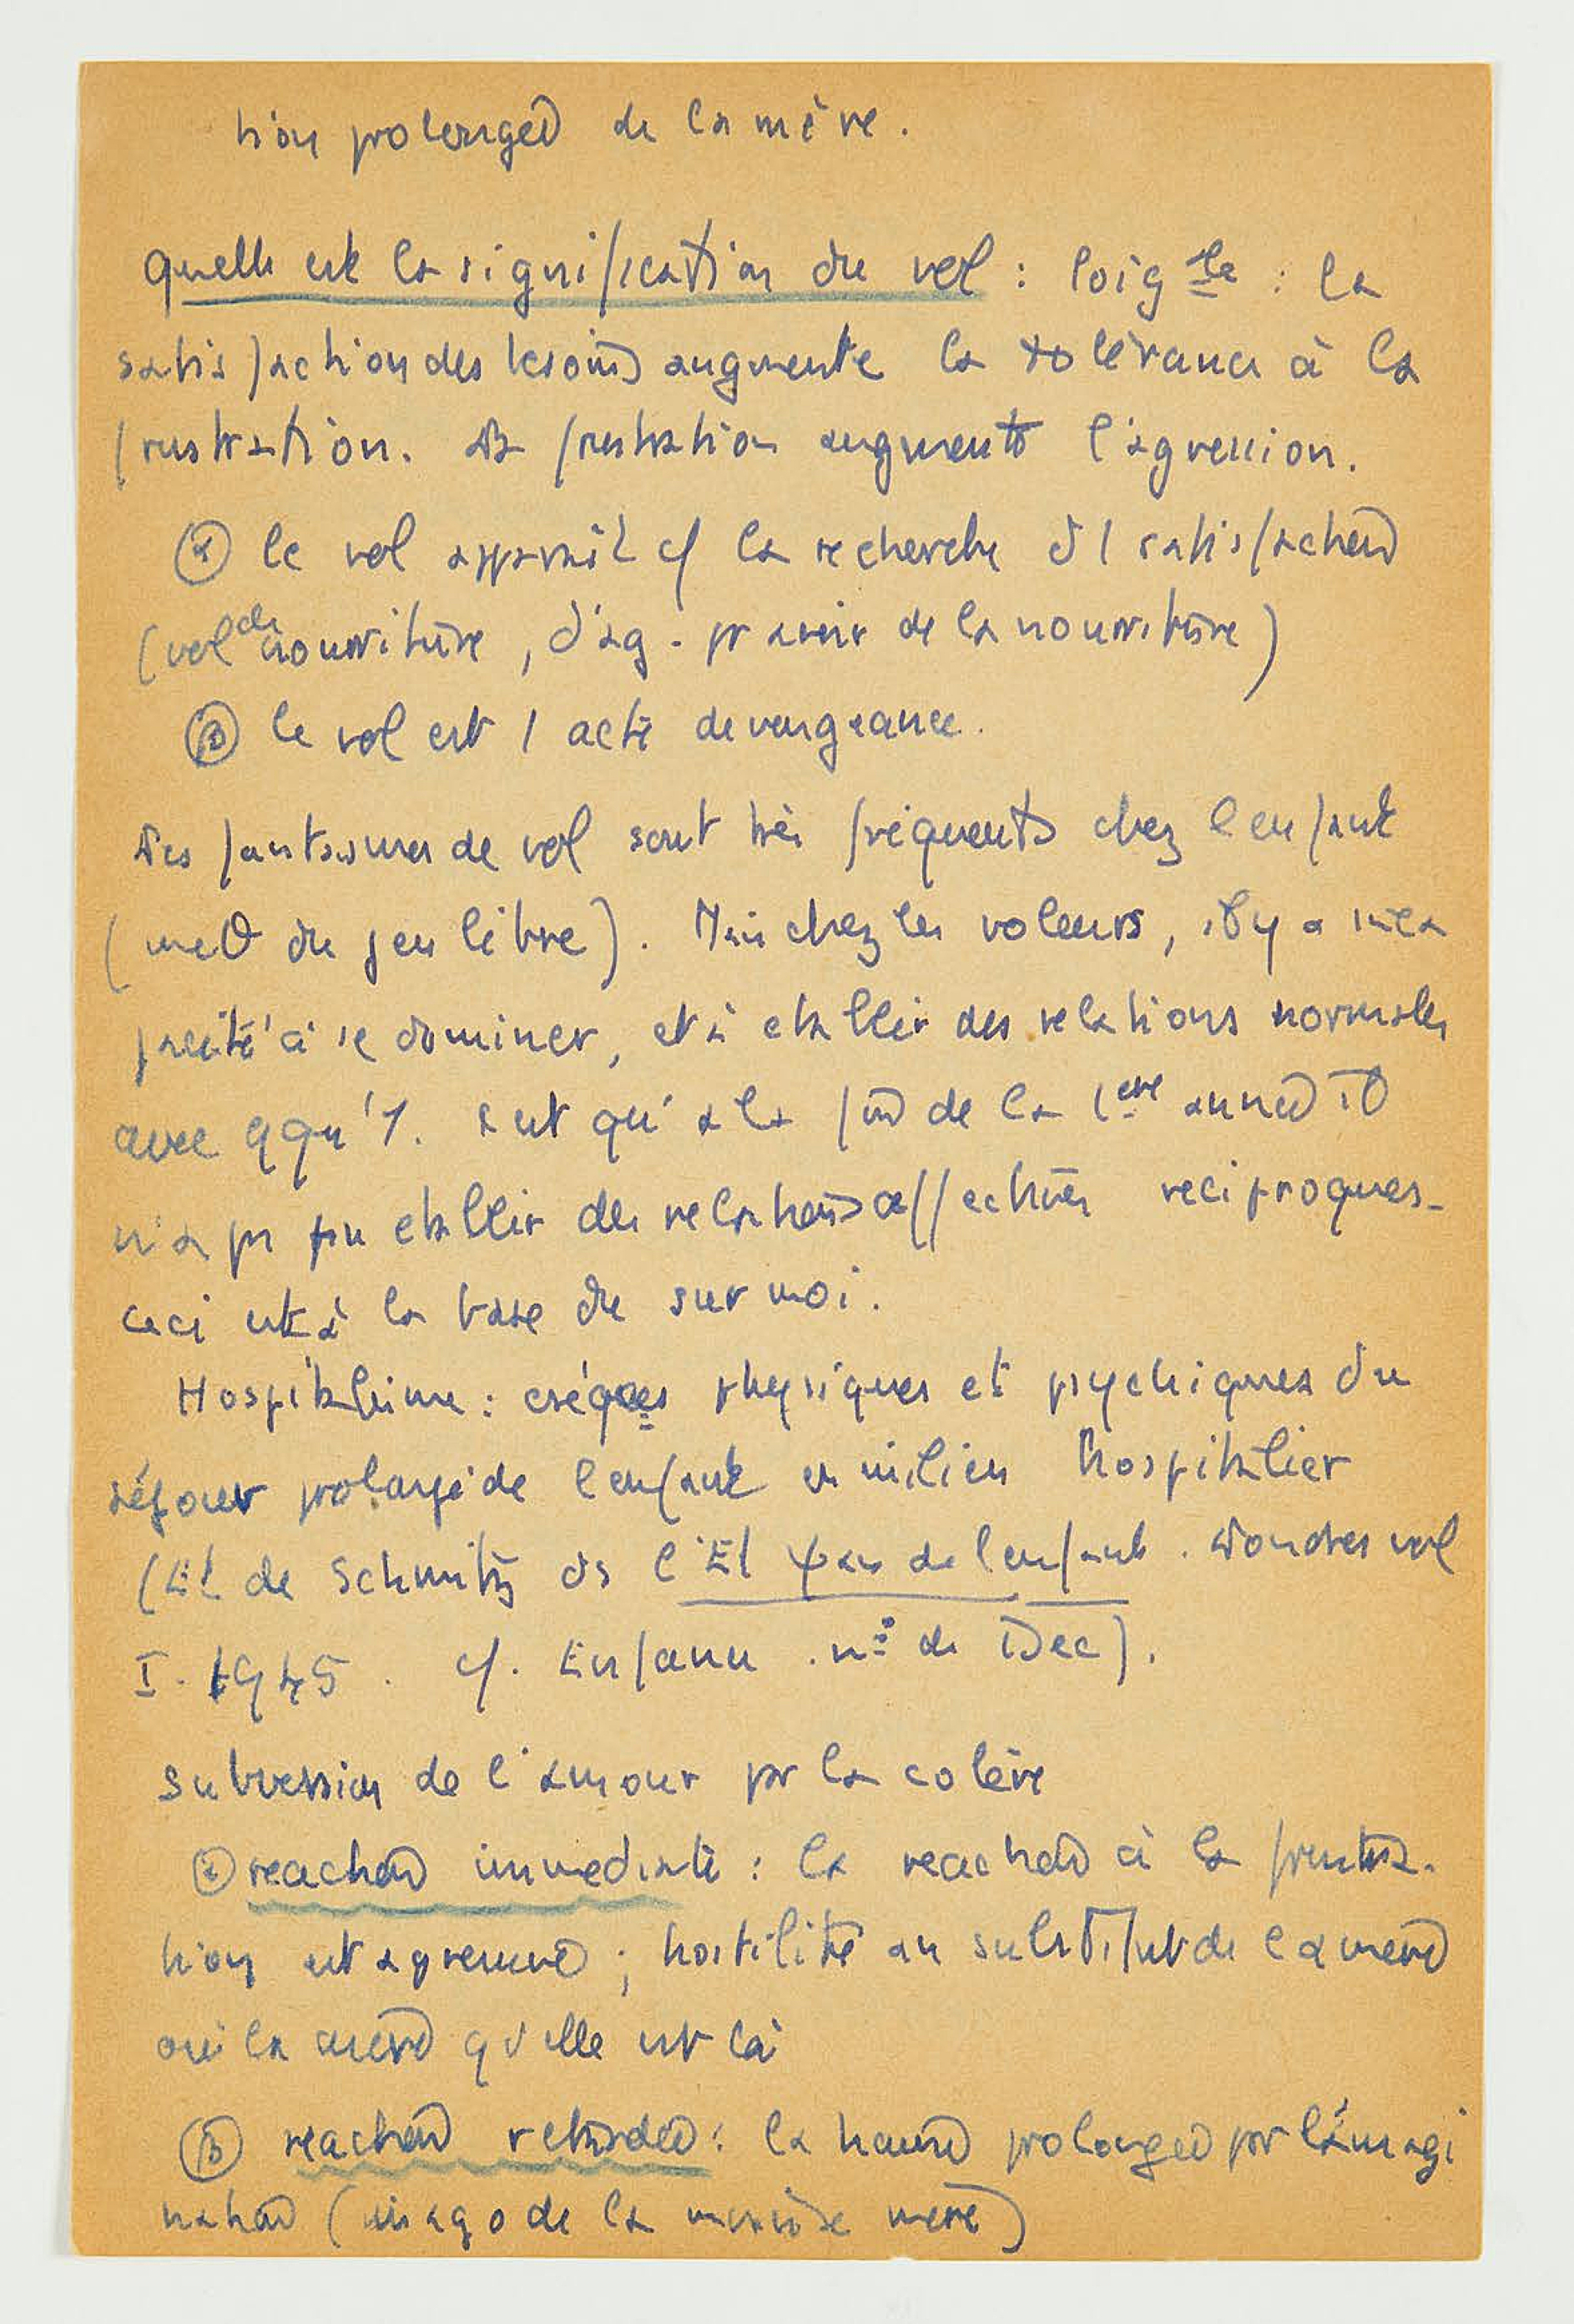 tion prolongée de la mère.
Quelle est la signification du vol : : la
satisfaction des besoins augmente la tolérance à la
frustration. La frustration augmente l'agression.
α le vol apparaît cf la recherche d 1 satisfaction
(vol de nourriture, d'ag. pr avoir de la nourriture)
β le vol est 1 acte de vengeance.
Les fantasmes de vol sont très fréquents chez l'enfant
( du jeu libre). Mais chez les voleurs, il y a inca
pacité à se dominer, et à etablir des relations normales
avec qqu'1. c'est qu'à la fin de la 1ere année
n'a pu etablir des relations affectives reciproques.
Ceci est à la base du sur moi.
Hospitalisme : physiques et psychiques du
séjour prolongé de l'enfant en milieu hospitalier
(Et de Schmitz ds l'Et de l'enfant. Londres vol
I. 1945. cf. Enfance. n° de Dec).
Subversion de l'amour par la colère
α reaction immediate : la reaction à la frustra-
tion est agressive ; hostilité au substitut de la mère
ou à la mère qd elle est là
β reaction retardée : la haine prolongée par l'imagi
nation (imago de la mauvaise mère)